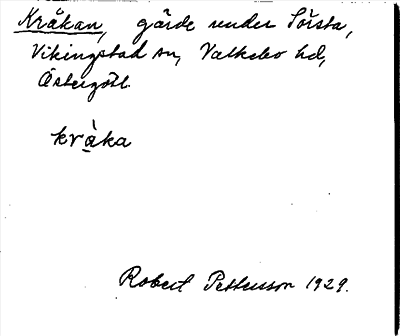 Kråkan, gärde under Sörsta,
Vikingstad sn, Valkebo hd,
Östergötl.
kràka
Robert Pettersson 1929.